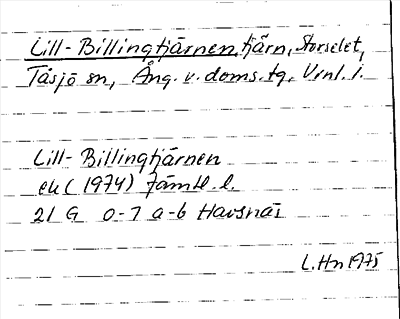 Lill-Billingtjärnen, tjärn, Storselet,
Tåsjö sn, Ång. v. doms. tg, Vrnl. l.
Lill-Billingtjärnen
ek (1974) Jämtl. l.
21 G 0-7 a-b Havsnäs
L. Hn 1975